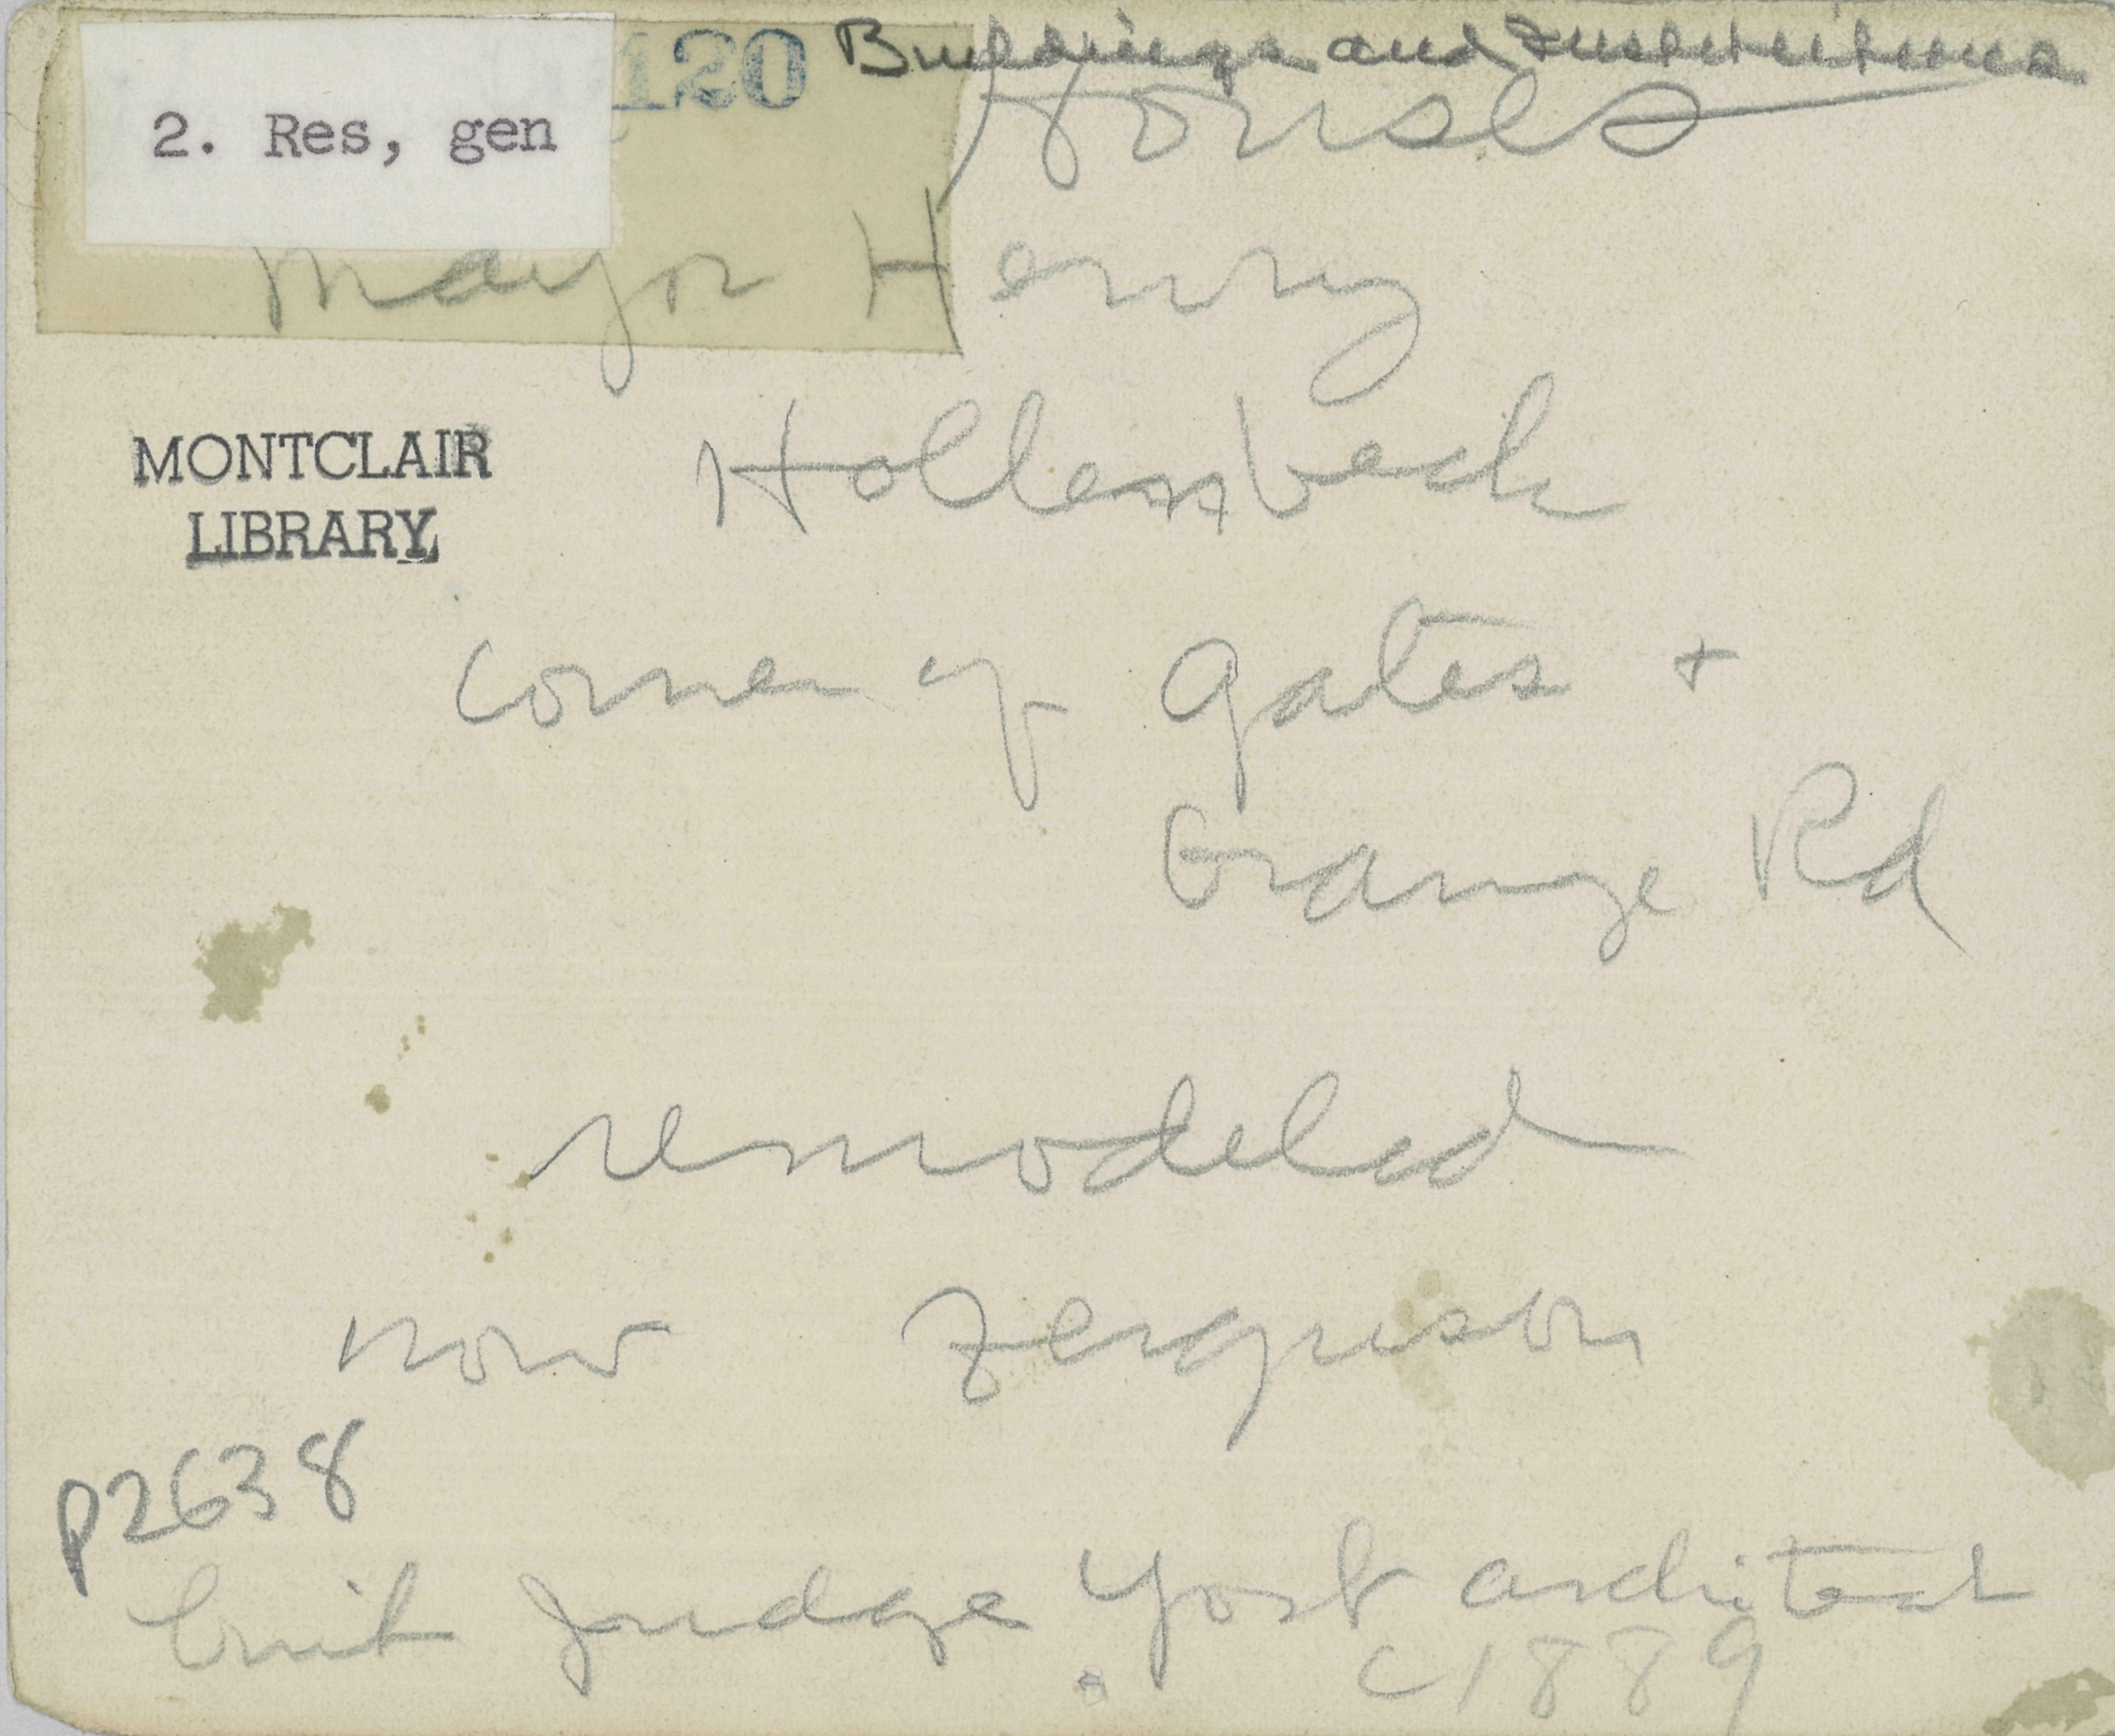 120 Buildings and Institutions
2. Res, gen
Houses
Mayor Henry
Hollenbeck
MONTCLAIR
LIBRARY
corner of Gates +
Orange Rd
remodeled
now Ferguson
P2638
Judge Yost architect
c1889